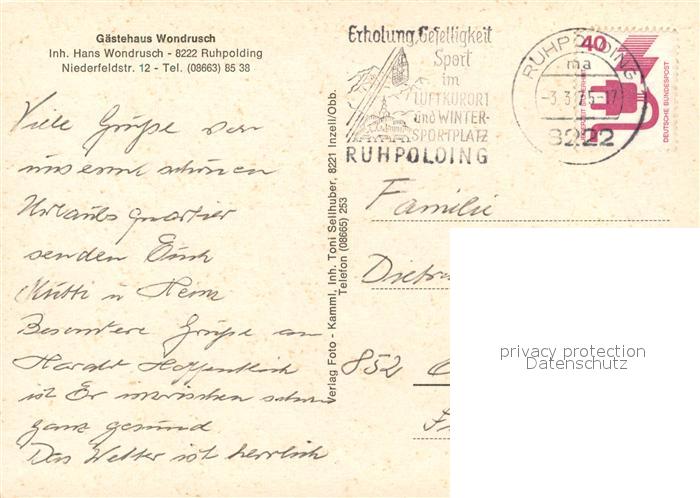 Gästehaus Wondrusch
Inh. Hans Wondrusch - 8222 Ruhpolding
Niederfeldstr. 12 - Tel. (08663) 85 38
Erholung, Geselligkeit
Sport
im
LUFTKURORT
und WINTER-
SPORTPLATZ
RUHPOLDING
RUHPOLDING
ma
-3.3.75-17
8222
40
DEUTSCHE BUNDESPOST
Viele Grüße von
unserem schönen
Urlaubsquartier
senden Euch
Mutti u Heinz
Besondere Grüße an
Harald Hoffentlich
ist Er inzwischen schon
ganz gesund
Das Wetter ist herrlich
Verlag Foto - Kamml, Inh. Toni Sellhuber, 8221 Inzell/Obb.
Telefon (08665) 253
Familie
852
privacy protection
Datenschutz